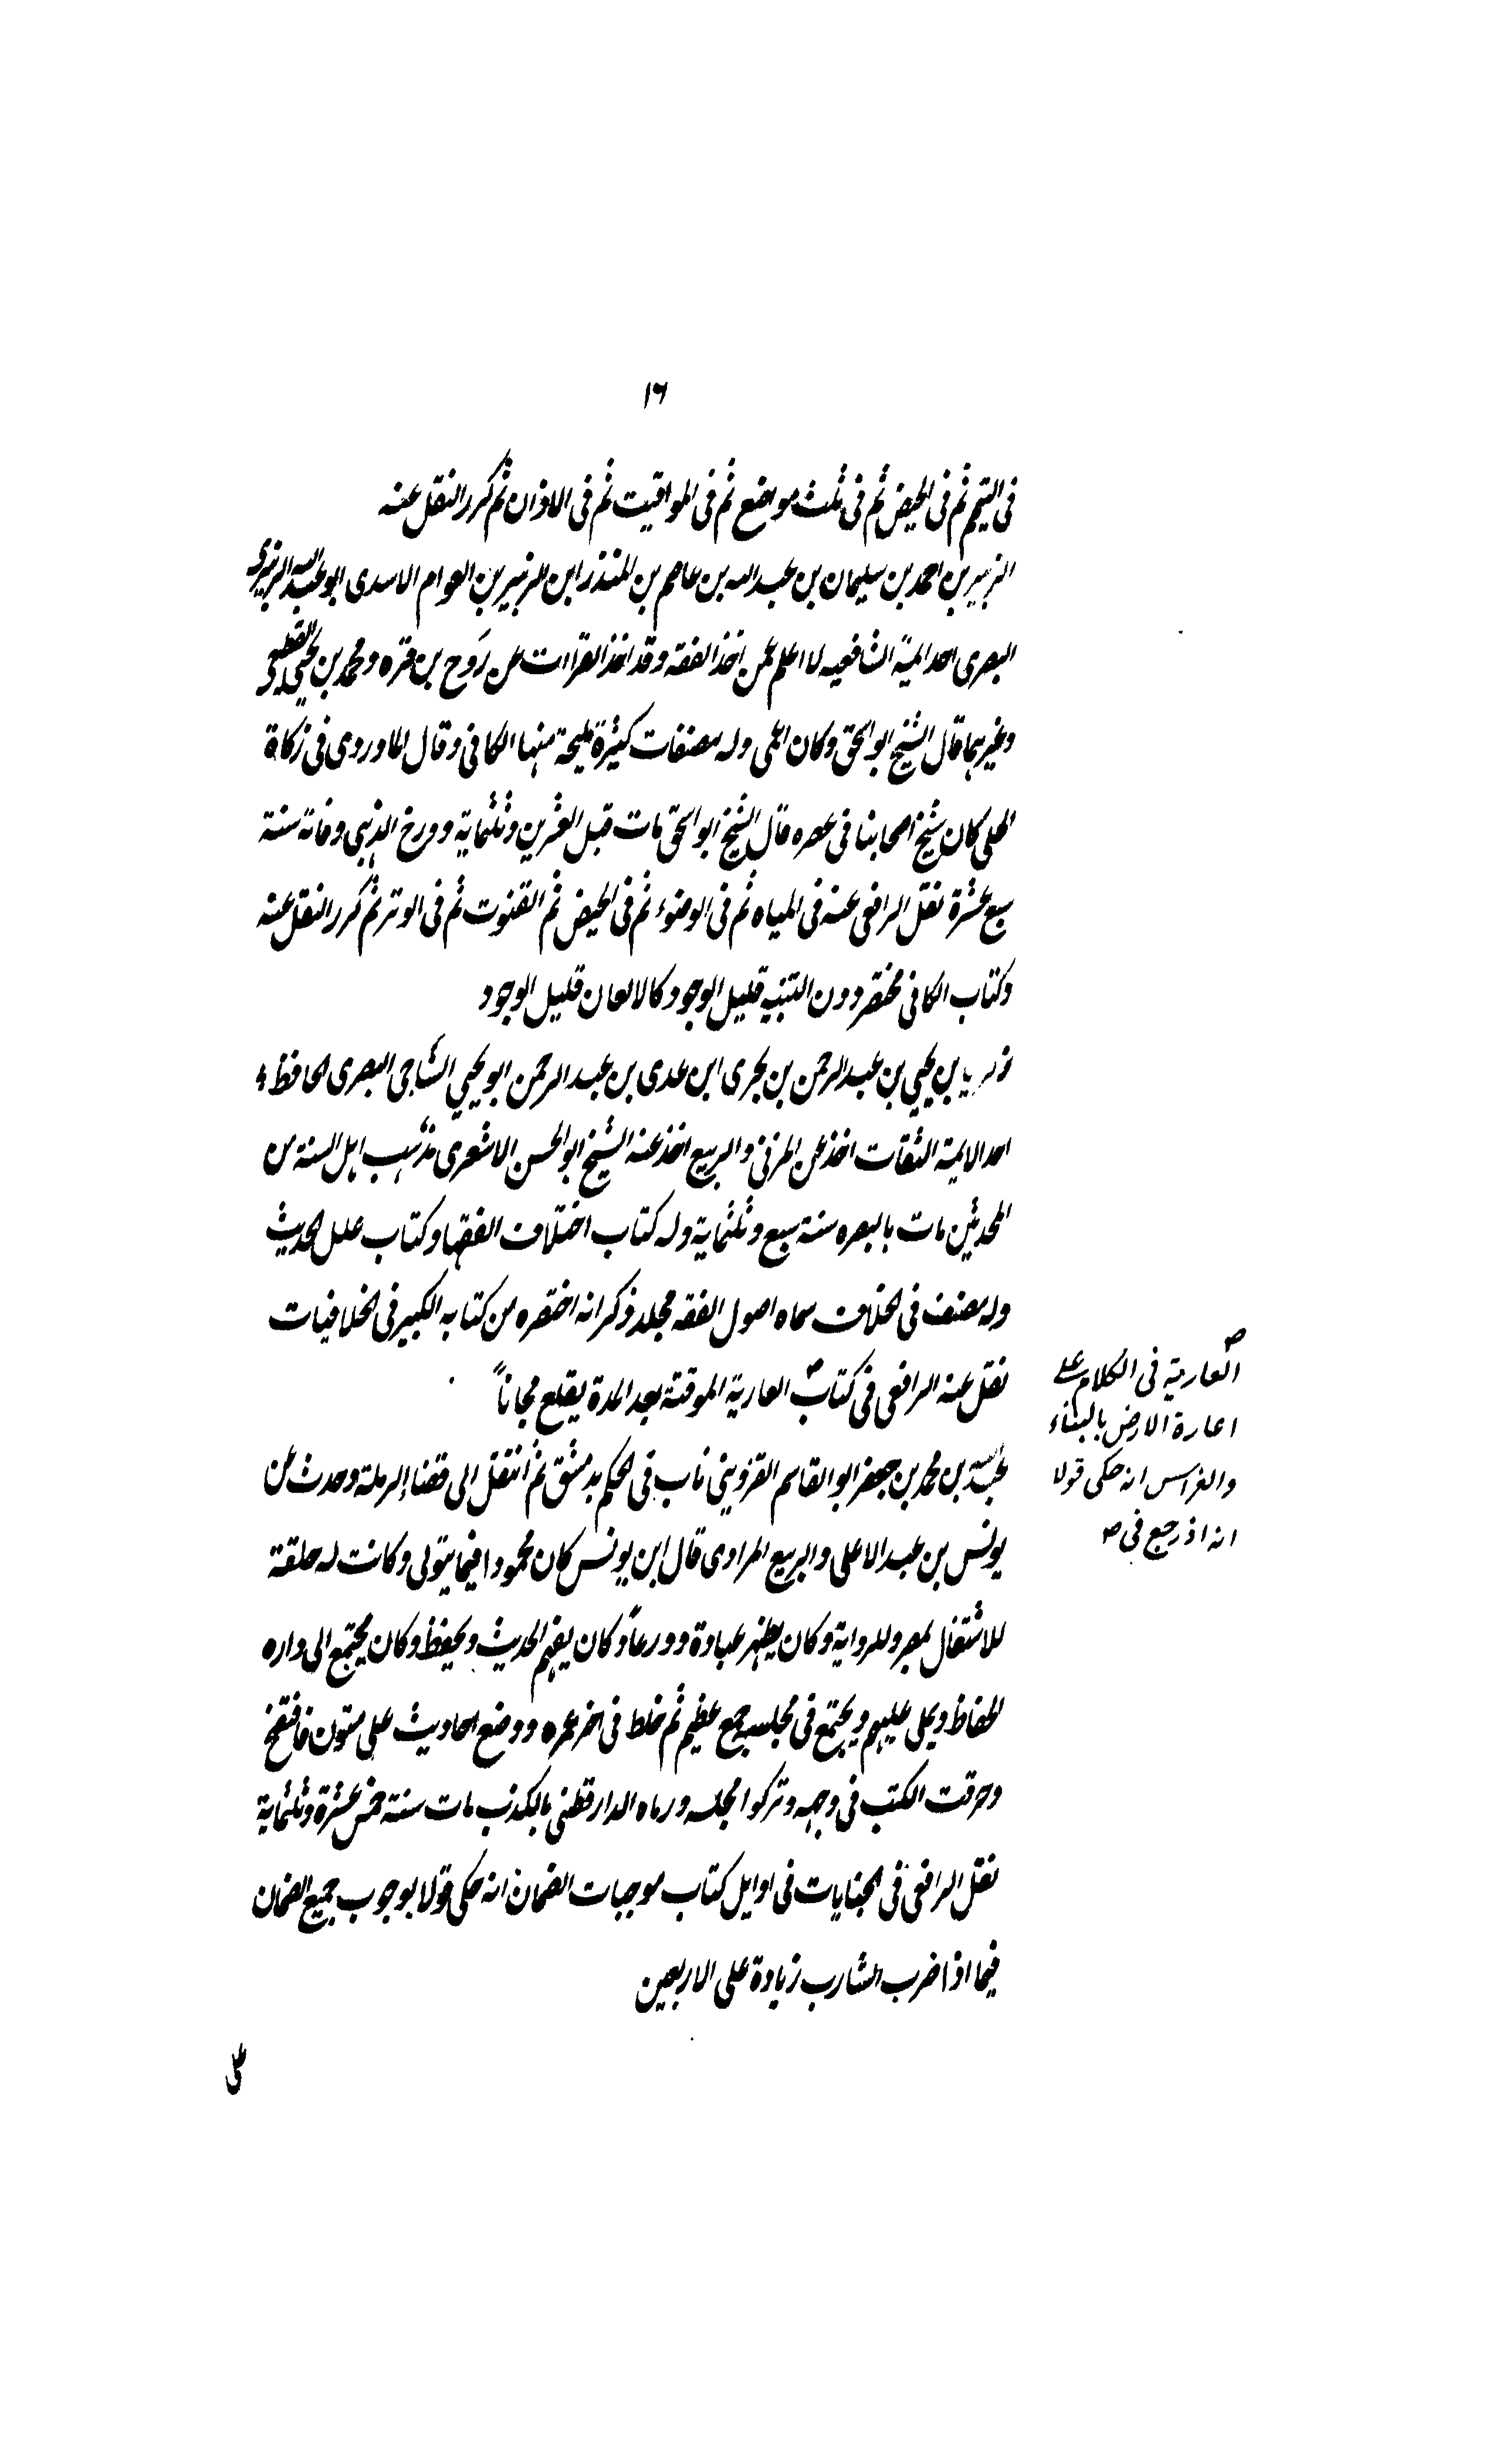 ١٦
فى التيمم ثم فى الحيض ثم فى ثلث مواضع ثم فى المواقيت ثم فى الاذان ثم كرر النقل عنه
الزبير بن احمد بن سليمان بن عبد الله بن عاصم بن المنذر ابن الزبير بن العوام الاسدى ابو عبد الله الزبيرى
البصرى احد ايمة الشافعيه لا اعلم عمن اخذ الفقه وقد اخذ القراات عن رَوح بن قره ومحمد بن يحيى القطعى
وغيرهما قال الشيخ ابو اسحق وكان اعمى وله مصنفات كثيرة مليحة منها الكافى وقال الماوردى فى زكاة
الحلى كان شيخ اصحابنا فى عصره قال الشيخ ابو اسحق مات قبل العشرين وثلثماية وورخ الذهبى وفاته سنة
سبع عشرة نقل الرافعى عنه فى المياه ثم فى الوضوء ثم فى الحيض ثم القنوت ثم فى الوتر ثم كرر النقل عنه
وكتاب الكافى مختصر دون التنبيه قليل الوجود كالالعان قليل الوجود
زكريا بن يحيى بن عبد الرحمن بن بحرى ابن عدى بن عبد الرحمن ابو يحيى الساجى البصرى الحافظ
احد الايمة الثقات اخذ عن المزنى والربيع اخذ عنه الشيخ ابو الحسن الاشعرى مذهب اهل السنة من
المحدثين مات بالبصره سنة سبع وثلثماية وله كتاب اختلاف الفقها وكتاب علل الحديث
وله مصنف فى الخلاف سماه اصول الفقه مجلد ذكر انه اختصره من كتابه الكبير فى الخلافيات
نقل عنه الرافعى فى كتاب العارية الموقتة بعد المدة يقلع مجاناً
ص
العارية فى الكلام على
اعارة الارض بالبناء
والغراس انه حكى قولا
انه اذ رجع فى ص
عبد الله بن محمد بن جعفر ابو القاسم القزوينى ناب فى الحكم بدمشق ثم انتقل الى قضاء الرملة وحدث عن
يونس بن عبد الاعلى والربيع المرادى قال ابن يونس كان محمودا فيما يتولى وكانت له حلقة
للاشتغال بمصر وللرواية وكان يظهر عبادة وورعاً وكان يفهم الحديث ويحفظ وكان يجتمع الى داره
الحفاظ ويملى عليهم ويجتمع فى مجلسه جمع عظيم ثم خلط فى اخر عمره ووضع احاديث على متون فافتضح
وحرقت الكتب فى وجهه وتركوا مجلسه ورماه الدارقطنى بالكذب مات سنة خمس عشرة وثلثماية
نقل الرافعى فى الجنايات فى اوايل كتاب موجبات الضمان انه حكى قولا بوجوب جميع الضمان
فيما اذا ضرب الشارب زيادة على الاربعين